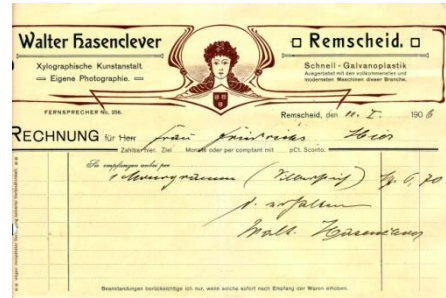 Walter Hasenclever
□ Remscheid. □
Xylographische Kunstanstalt.
Eigene Photographie.
Schnell - Galvanoplastik
Ausgerüstet mit den vollkommensten und
modernsten Maschinen dieser Branche.
FERNSPRECHER No. 256.
Remscheid, den 10. I. 1906
RECHNUNG für Herr Frau Friedrichs Hier
Zahlbar hier. Ziel Monate oder per comptant mit pCt. Sconto.
Sie empfangen anbei per
1 Monogramm M. 6,70
d. erhalten
Walt. Hasenclever
Beanstandungen berücksichtige ich nur, wenn solche sofort nach Empfang der Waren erhoben.